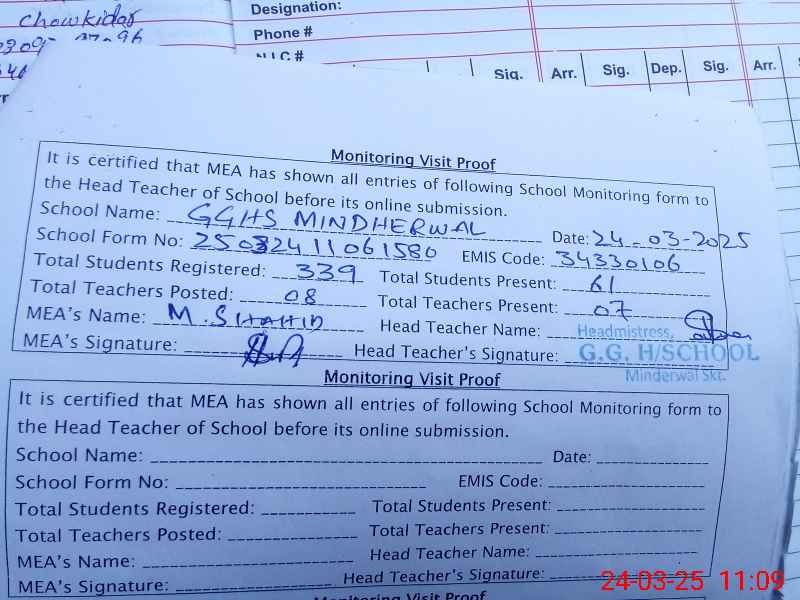 chowkidar
Designation:
Phone #
N.I.C #
Sig. Arr. Sig. Dep. Sig. Arr.
Monitoring Visit Proof
It is certified that MEA has shown all entries of following School Monitoring form to
the Head Teacher of School before its online submission.
School Name: GGHS MINDHERWAL Date: 24-03-2025
School Form No: 25032411061580 EMIS Code: 34330106
Total Students Registered: 339 Total Students Present: 61
Total Teachers Posted: 08 Total Teachers Present: 07
MEA's Name: M. SHAHID Head Teacher Name:
Headmistress,
MEA's Signature: Head Teacher's Signature: G.G. H/SCHOOL
Minderwal Skt.
Monitoring Visit Proof
It is certified that MEA has shown all entries of following School Monitoring form to
the Head Teacher of School before its online submission.
School Name: Date:
School Form No: EMIS Code:
Total Students Registered: Total Students Present:
Total Teachers Posted: Total Teachers Present:
MEA's Name: Head Teacher Name:
MEA's Signature: Head Teacher's Signature:
Monitoring Visit Proof
24-03-25 11:09